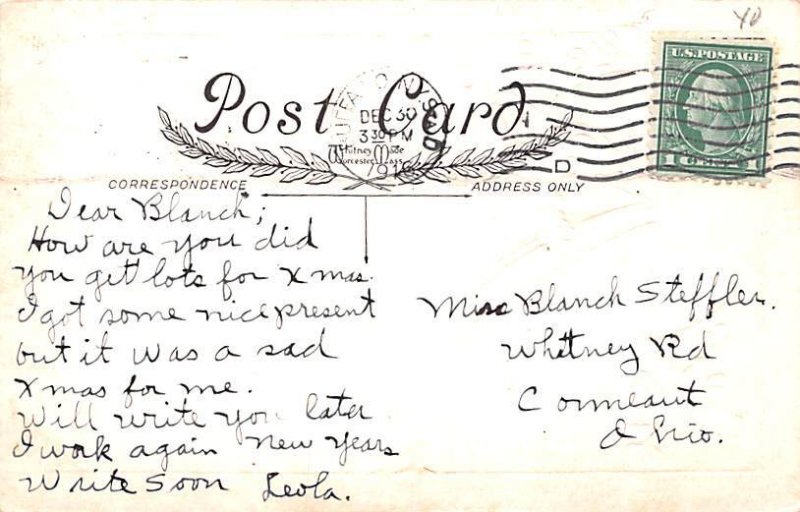 40
U.S. POSTAGE
Post Card
BUFFALO, N.Y.
DEC 30
330 PM
Whitney Made
Worcester, Mass
D
1 CENT 1
CORRESPONDENCE
ADDRESS ONLY
Dear Blanch;
How are you did
you get lots for Xmas.
I got some nice present
but it was a sad
Xmas for me.
Will write you later
I work again New Years
Write Soon Leola.
Miss Blanch Steffler.
Whitney Rd
Conneaut
Ohio.